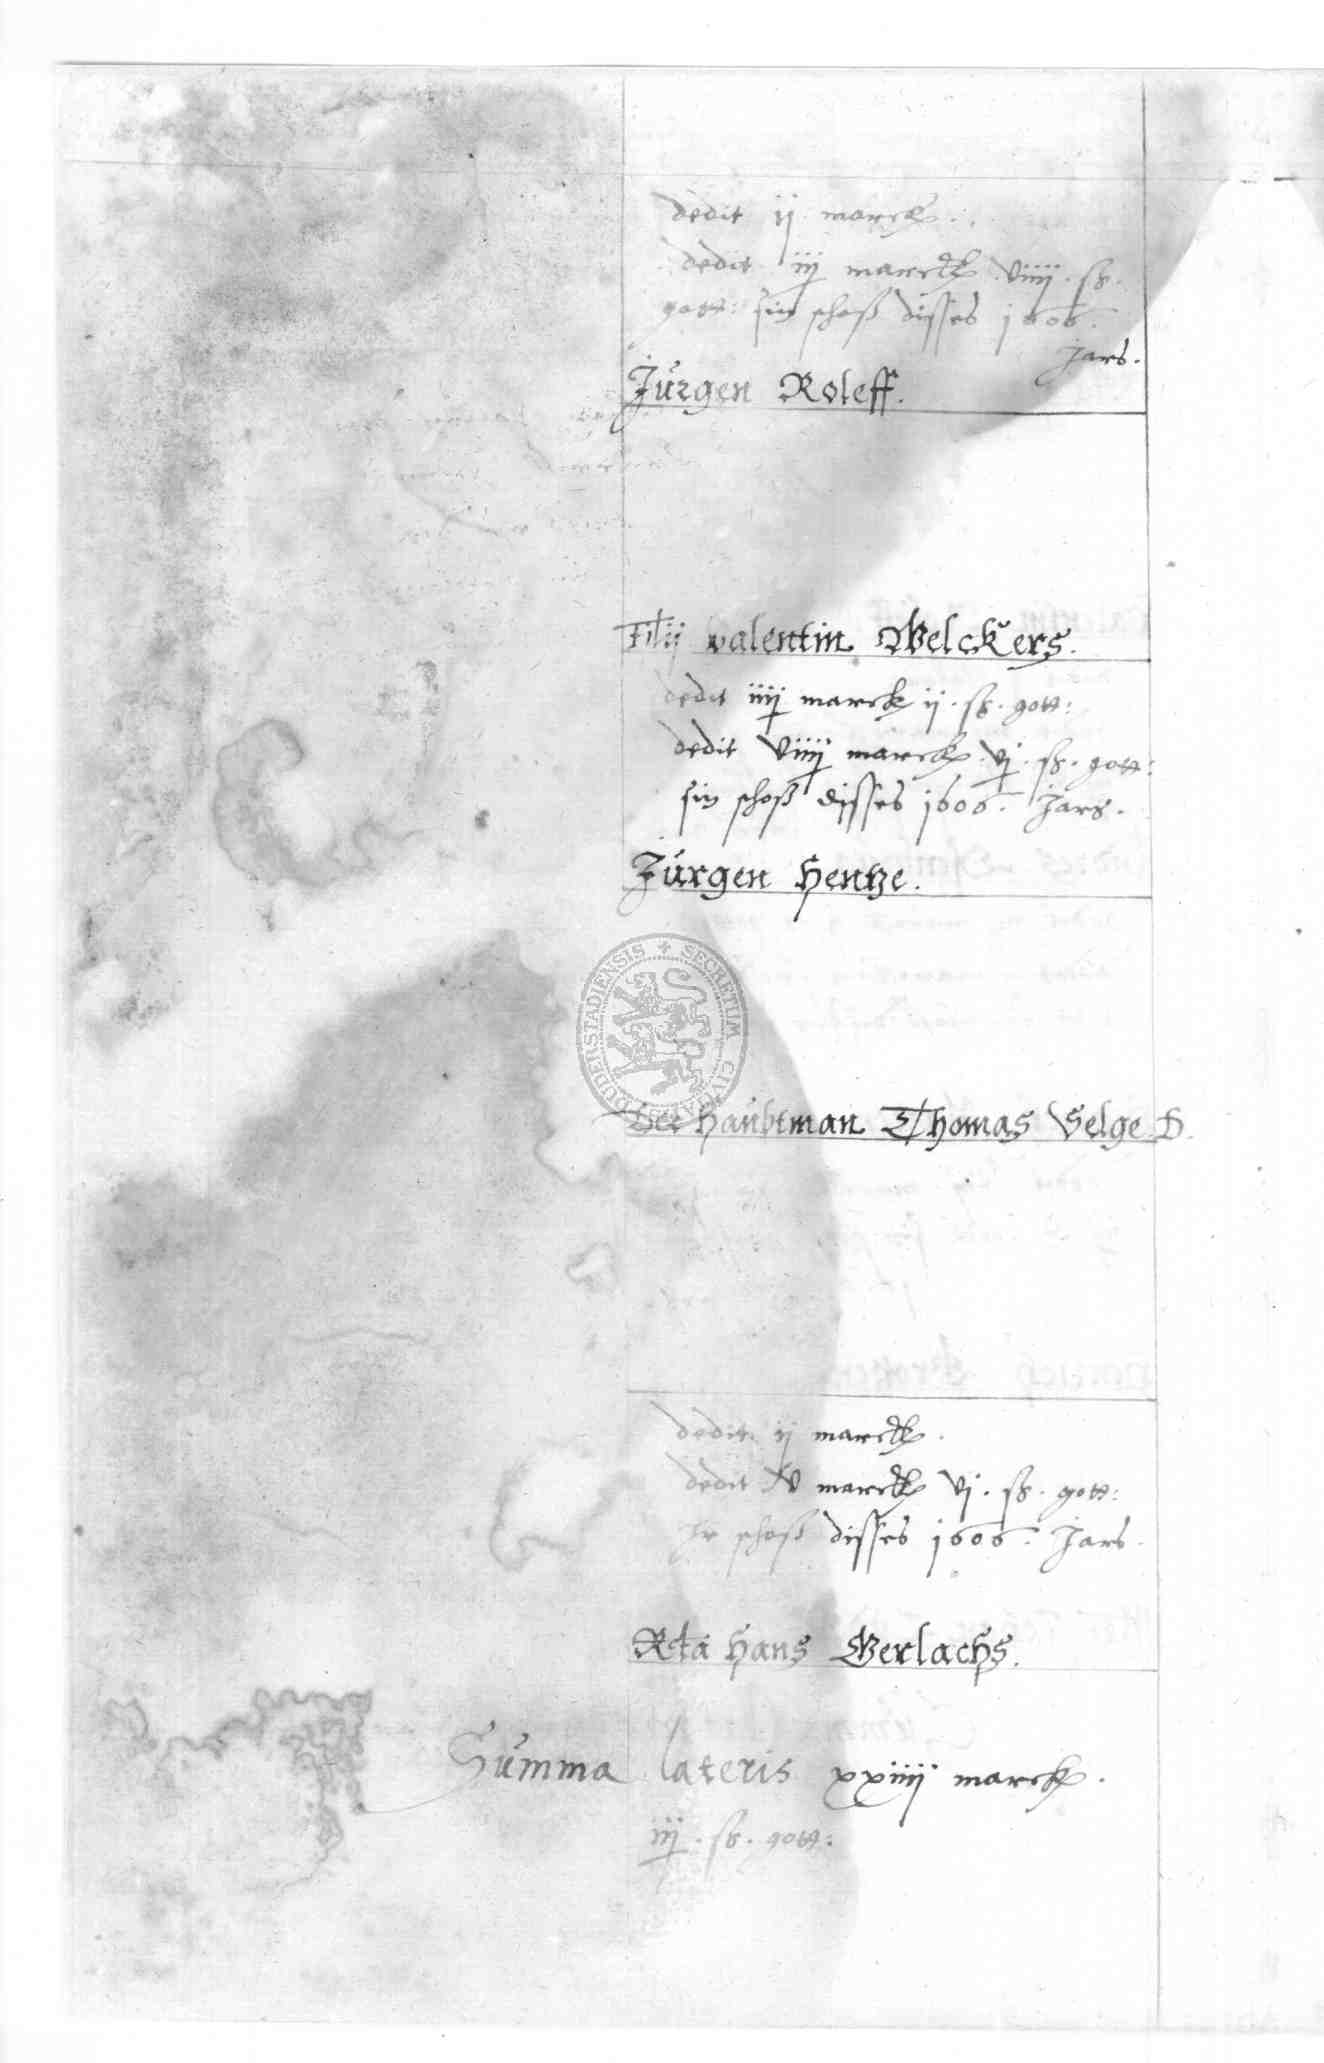 dedit ij marck.
dedit iiȷ marck viiij. sß.
gott: sin schoß disses 1606.
Jars.
Jürgen Roleff.
Filij valentin Welckers.
dedit iiiȷ marck ij. sß. gott:
dedit viiiȷ marck. vȷ. sß. gott:
sin schoß disses 1606. Jars.
Jürgen Hentze.
SECRETUM CIVITATIS DUDERSTADIENSIS
Der Haubtman Thomas Selge. D.
dedit ij marck.
dedit v marck vj. sß. gott:
Ir schoß disses 1606. Jars.
Rta Hans Gerlachs.
Summa lateris xxiiij marck.
iiȷ. sß. gott: